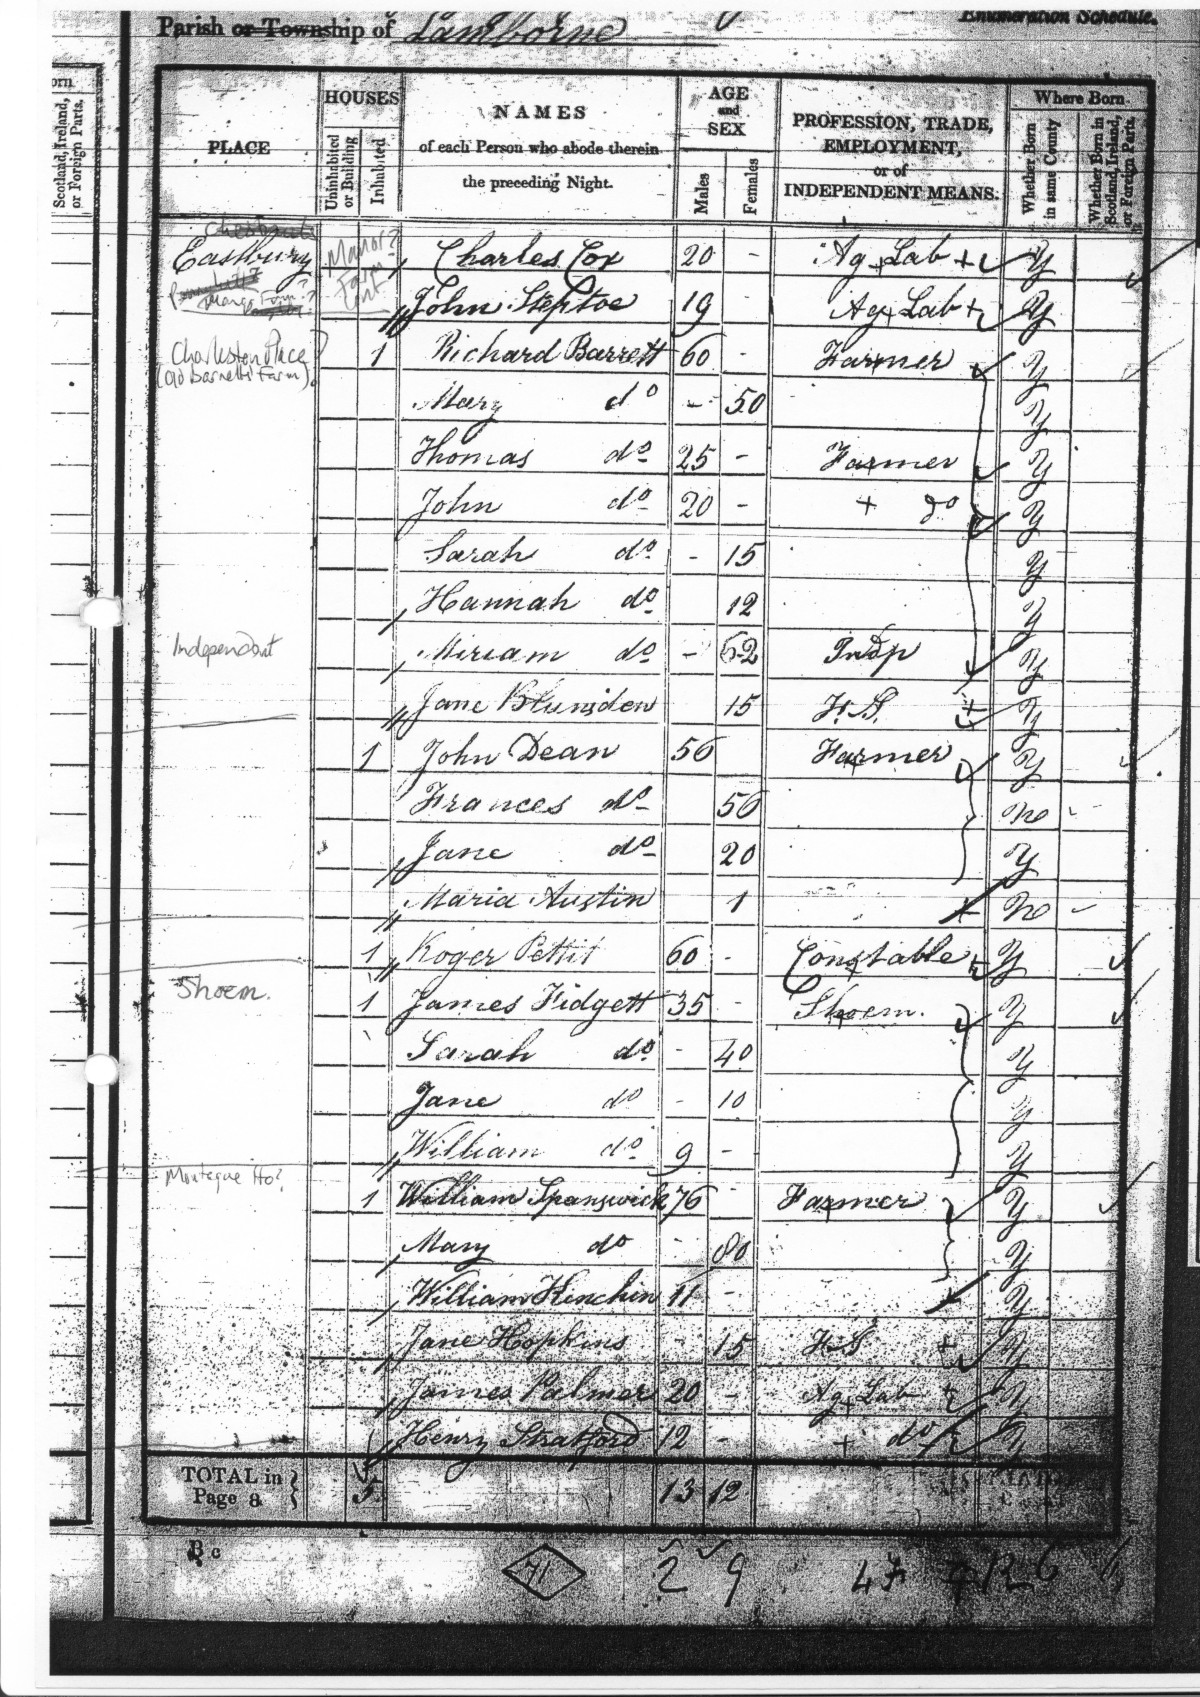 Enumeration Schedule.
Parish or Township of Lamborne
PLACE
HOUSES
Uninhabited or Building
Inhabited
NAMES
of each Person who abode therein
the preceding Night.
AGE and SEX
Males
Females
PROFESSION, TRADE,
EMPLOYMENT,
or of
INDEPENDENT MEANS.
Where Born
Whether Born in same County
Whether Born in Scotland, Ireland, or Foreign Parts.
Scotland, Ireland, or Foreign Parts.
Eastbury Manor? Farm Charles Cox 20 - Ag Lab Y
Farm? John Steptoe 19 Ag Lab Y
Charleston Place? (old Barnetts Farm) 1 Richard Barrett 60 - Farmer Y
Mary do - 50 Y
Thomas do 25 - Farmer Y
John do 20 - do Y
Sarah do - 15 Y
Hannah do 12 Y
Independent Miriam do - 62 Indp Y
Jane Blunsden 15 F.S. Y
1 John Dean 50 Farmer Y
Frances do 50 No -
Jane do 20 Y
Maria Austin 1 No -
1 Roger Pettit 60 - Constable Y
Shoem. 1 James Fidgett 35 - Shoem. Y
Sarah do - 40 Y
Jane do - 10 Y
William do 9 - Y
Monteque Ho? 1 William Spanswick 76 - Farmer Y
Mary do - 80 Y
William Henchin 11 - Y
Jane Hopkins - 15 F.S Y
James Palmer 20 - Ag Lab Y
Henry Stratford 12 - do Y
TOTAL in Page 8 } 5 13 12
B c
71 2 9